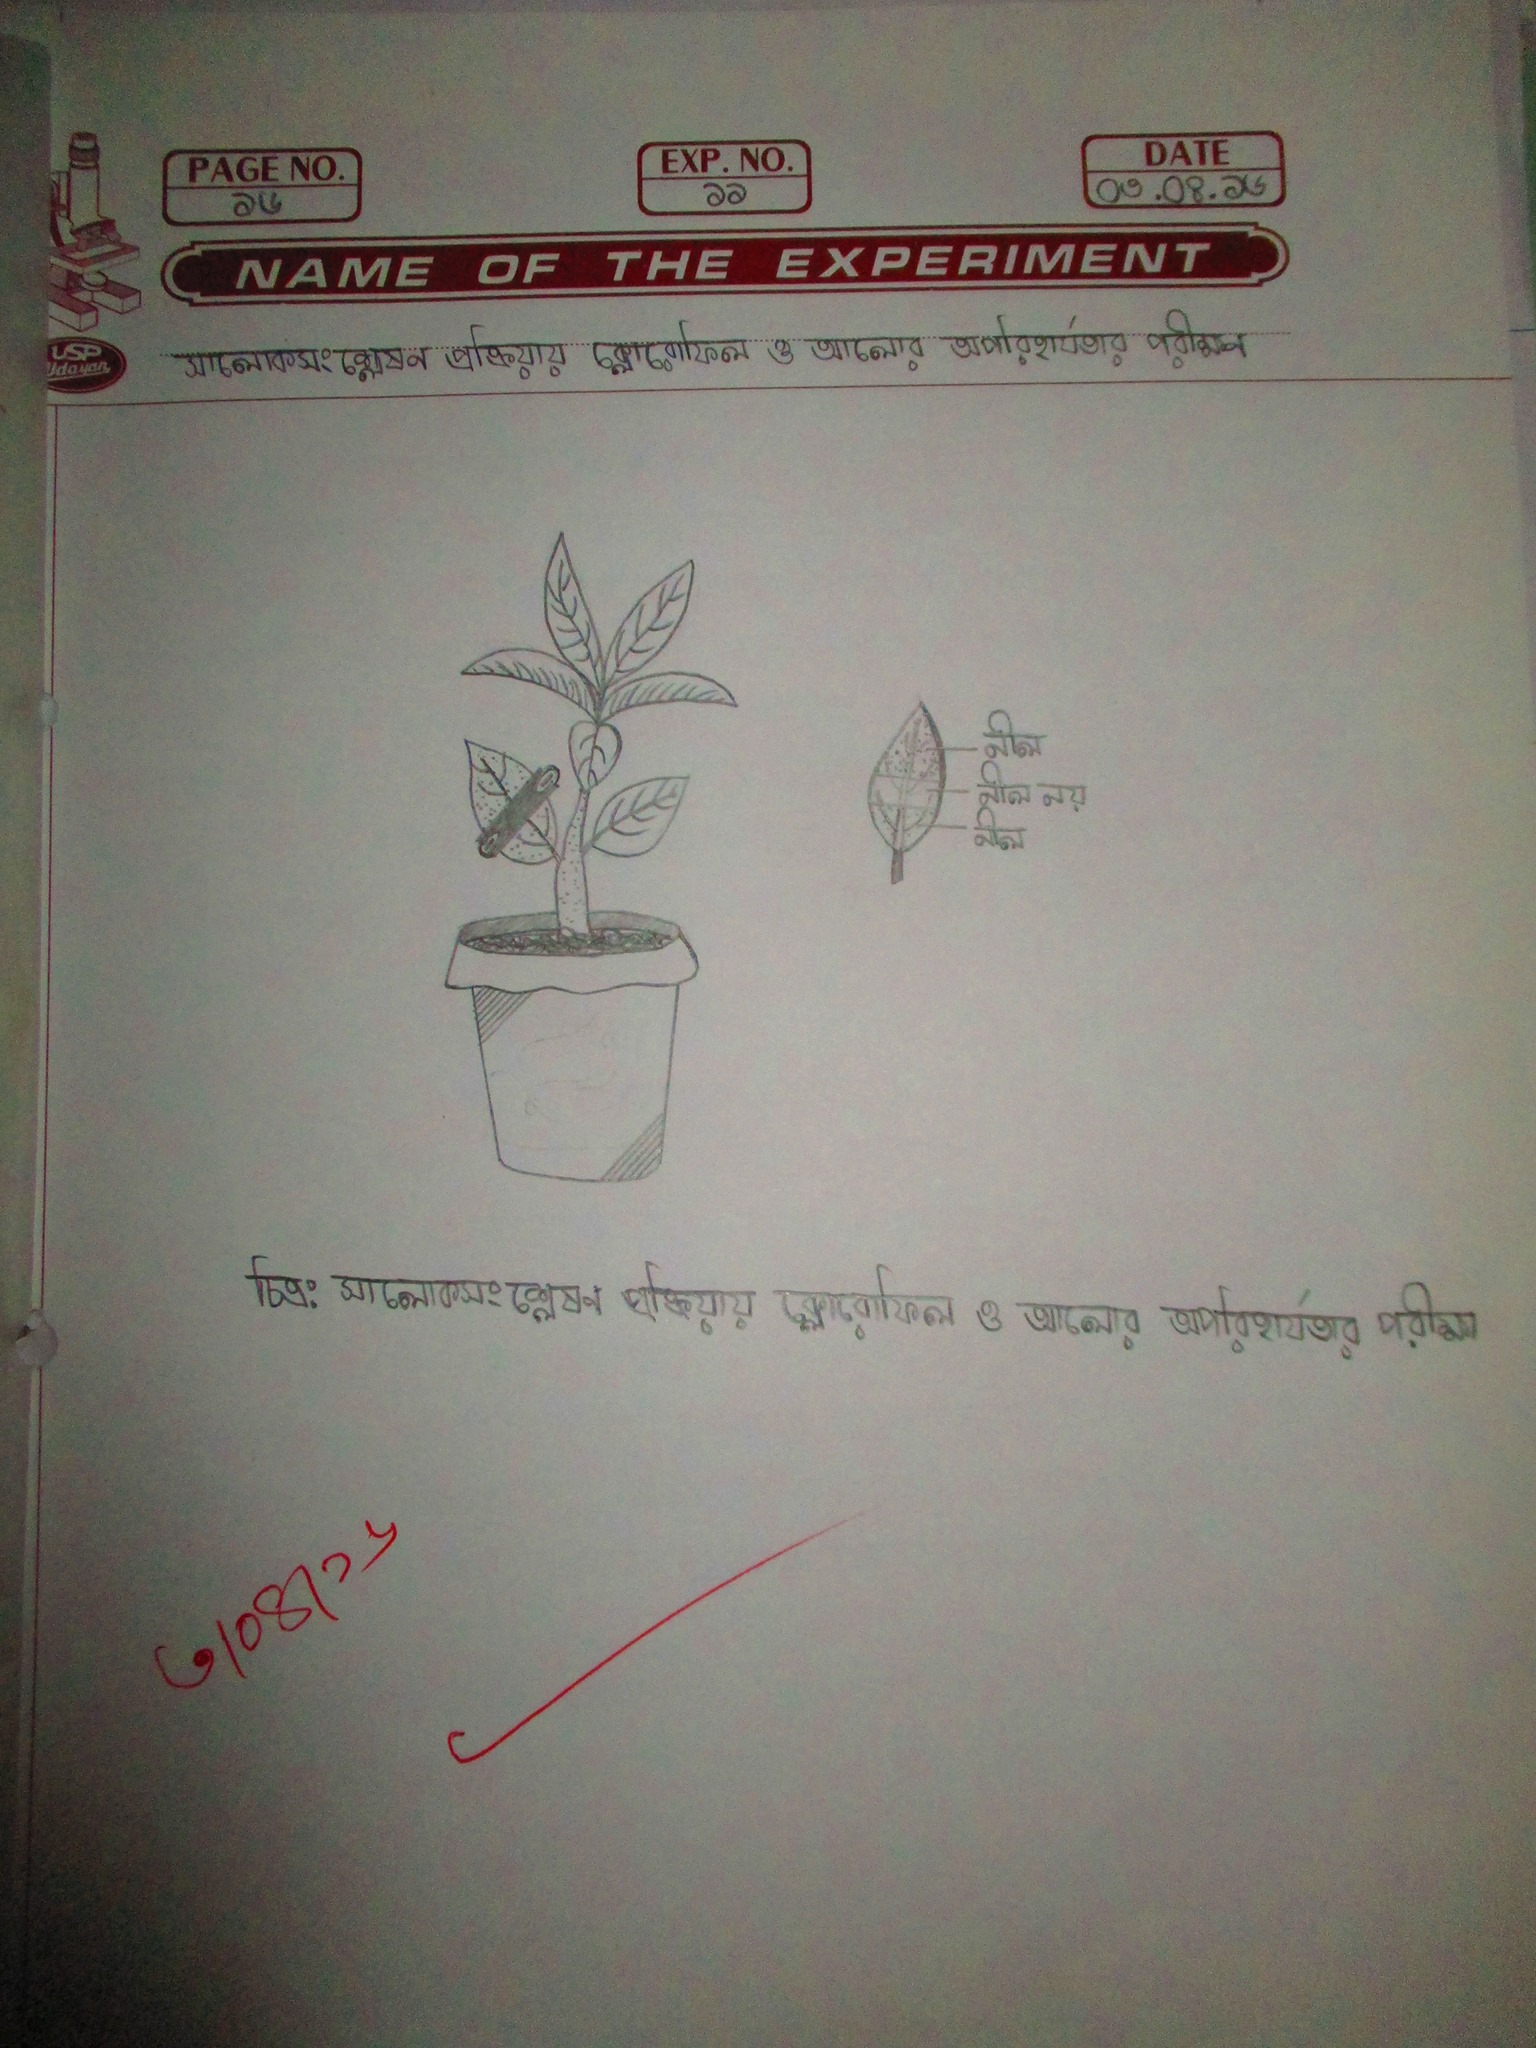 PAGE NO.
১৬
EXP. NO.
১১
DATE
০৩.০৪.১৬
NAME OF THE EXPERIMENT
USP
Udayan
সালোকসংশ্লেষন প্রক্রিয়ায় ক্লোরোফিল ও আলোর অপরিহার্যতার পরীক্ষন
নীল
নীল নয়
নীল
চিত্র: সালোকসংশ্লেষন প্রক্রিয়ায় ক্লোরোফিল ও আলোর অপরিহার্যতার পরীক্ষা